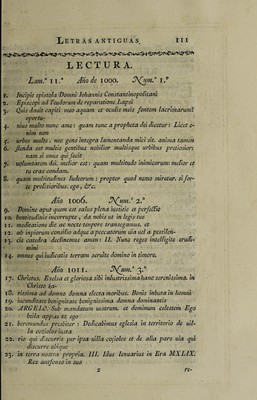 LETRAS ANTIGUAS. III
LECTURA.
Lam.ª 11.ª Año de 1000. Num.º 1.º
1. Incipit epistola Donni Iohannis Constantinopolitani
2. Episcopi ad Teodorum de reparatione Lapsi
3. Quis dabit capiti meo aquam et oculis meis fontem lacrimarum?
oportu-
4. nius multo nunc ame: quam tunc a propheta dei dicetur: Licet e-
nim non
5. urbes multe: nec gens integra lamentanda mici sit. anima tamen
6. flenda est multis gentibus nobilior multisque urbibus pretiosior:
nam si unus qui fecit
7. voluntatem dei. melior est: quam multitudo inimicorum melior et
tu eras condam.
8. quam multitudines Iudeorum: propter quod nemo miretur. si for-
te prolixioribus. ego, &c.
Año 1006. Num.º 2.º
9. Domine aput quem est salus plena iustitie et perfectio
10. beatitudinis incorrupte, da nobis ut in legis tue
11. meditatione die ac nocte tempore transeamus. et
12. ab impiorum consilio adque a peccatorum via vel a pestilen-
13. tie catedra declinemus amen: II. Nunc reges intelligite erudi-
mini
14. omnes qui iudicatis terram servite domino in timore.
Año 1011. Num.º 3.º
17. Christus. Excelsa et gloriosa tibi industrissima hanc serenissima. in
Christo ka-
18. rissima ad domno donna electa moribus. Bonis inbuta in homni
19. iucunditate benignitate benignissima donna dominantis
20. ARGELO. Sub mandatum uestrum. et dominum celestem Ego
beila appas et ego
21. beremundus presbiter: Dedicabimus eglesia in territorio de uil-
la coziolo iusta
22. rio qui discurrit per ipsa uilla coziolos et de alia pars uia qui
discurre ubique
23. in terra nostra propria. III. Idus Ienuarias in Era MXLIX.
Rex anfonso in sua
2 re-